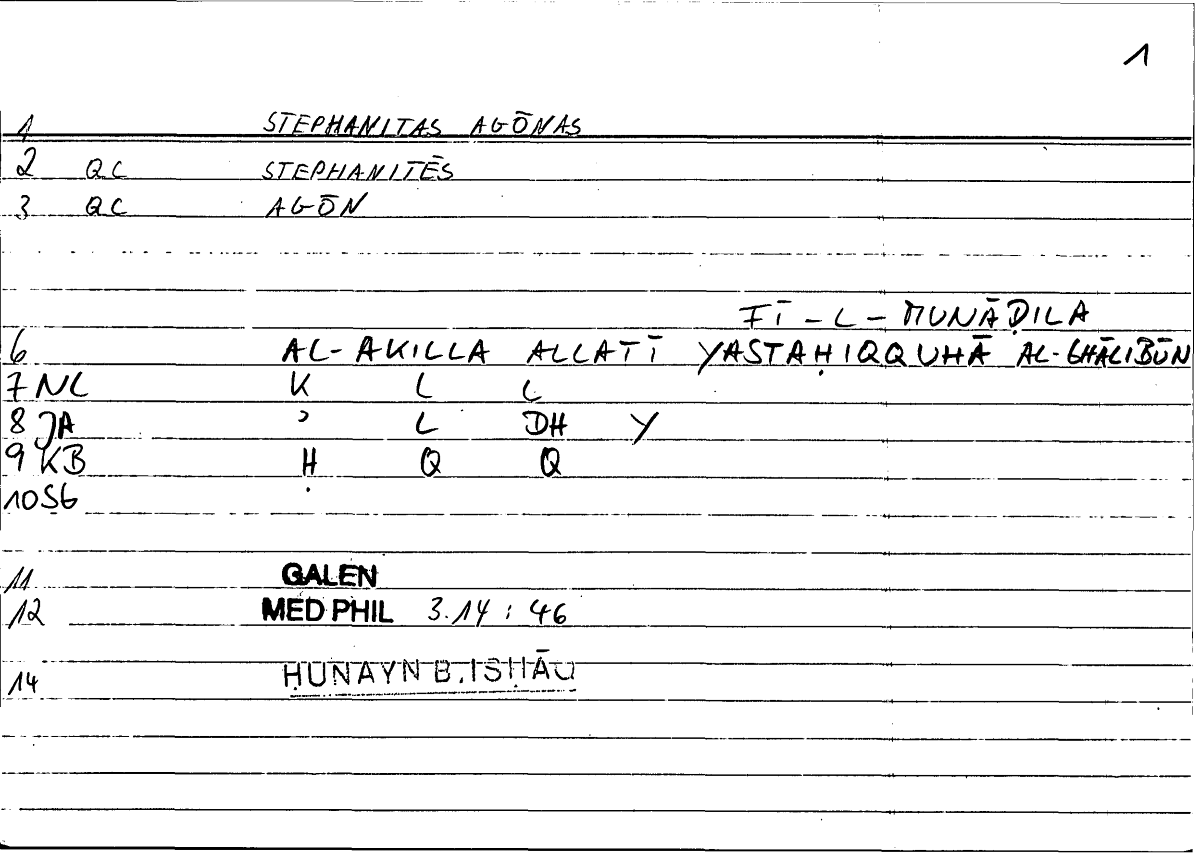 1
1 STEPHANITAS AGŌNAS
2 QC STEPHANITĒS
3 QC AGŌN
FĪ-L-MUNĀḌILA
6 AL-AKILLA ALLATĪ YASTAḤIQQUHĀ AL-GHĀLIBŪN
7 NL K L L
8 JA ʾ L DH Y
9 KB Ḥ Q Q
10 SG
11 GALEN
12 MED PHIL 3.14 : 46
14 ḤUNAYN B. ISḤĀQ